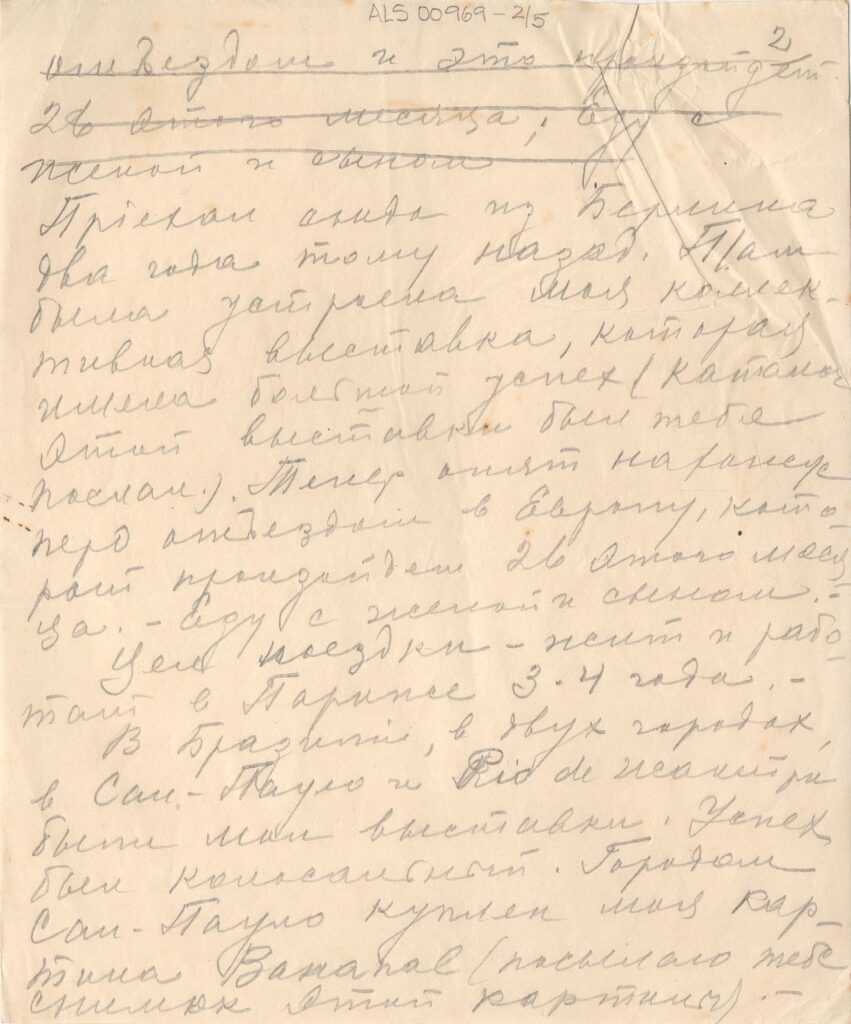 ALS 00969-2/5
2
отъездом и это произойдет
26 этого месяца; Еду с
женой и сыном
Пріехал сюда из Берлина
два года тому назад. Там
была устроена моя коллек-
тивная выставка, которая
имела болшой успех (каталог
этой выставки был тебе
послан). Тепер опят на
перед отъездом в Европу, кото
рый произойдет 26 этого меся
ца. – Еду с женой и сыном. –
Цел поездки – жит и рабо-
тат в Париже 3-4 года. –
В Бразилии, в двух городах,
в Сан-Пауло и Rio de Жанейро
были мои выставки. Успех
был колосалный. Городом
Сан-Пауло куплен моя кар-
тина Bananal (посылаю тебе
снимок этой картины). –